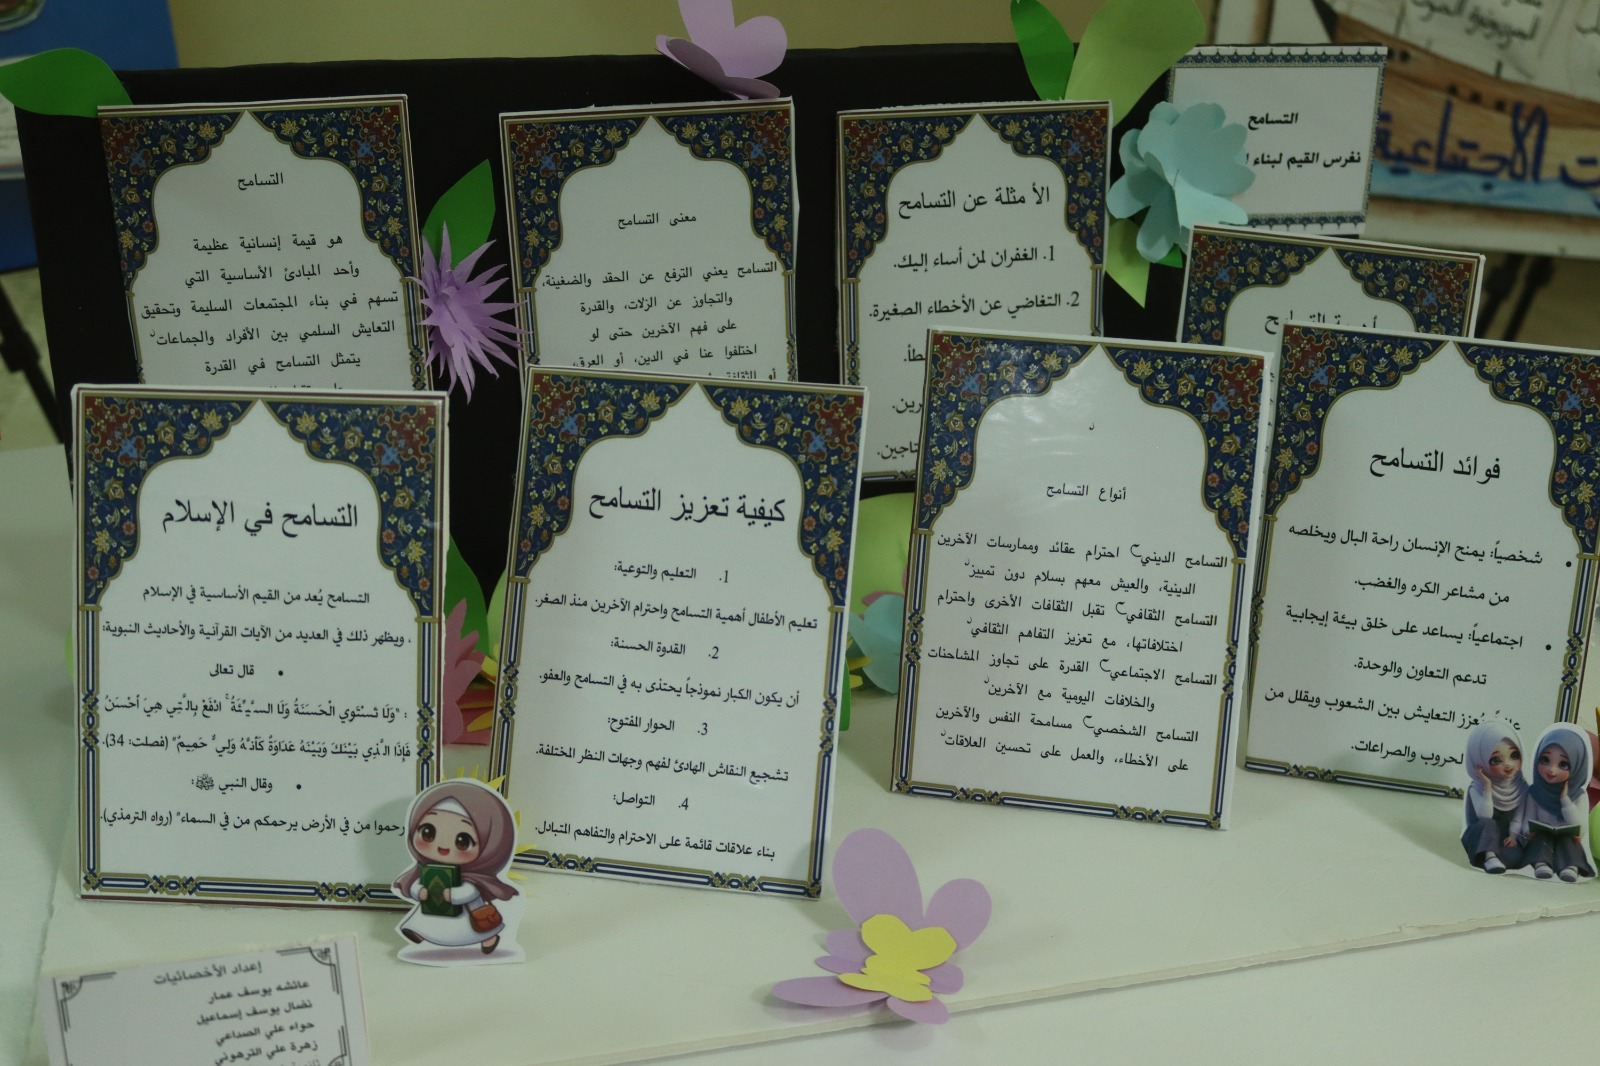 التسامح
هو قيمة إنسانية عظيمة
وأحد المبادئ الأساسية التي
تسهم في بناء المجتمعات السليمة وتحقيق
التعايش السلمي بين الأفراد والجماعات
يتمثل التسامح في القدرة
معنى التسامح
التسامح يعني الترفع عن الحقد والضغينة،
والتجاوز عن الزلات، والقدرة
على فهم الآخرين حتى لو
اختلفوا عنا في الدين، أو العرق،
الأمثلة عن التسامح
1. الغفران لمن أساء إليك.
2. التغاضي عن الأخطاء الصغيرة.
التسامح
نغرس القيم لبناء
أهمية التسامح
التسامح في الإسلام
التسامح يُعد من القيم الأساسية في الإسلام
، ويظهر ذلك في العديد من الآيات القرآنية والأحاديث النبوية:
• قال تعالى
: "وَلَا تَسْتَوِي الْحَسَنَةُ وَلَا السَّيِّئَةُ ۚ ادْفَعْ بِالَّتِي هِيَ أَحْسَنُ
فَإِذَا الَّذِي بَيْنَكَ وَبَيْنَهُ عَدَاوَةٌ كَأَنَّهُ وَلِيٌّ حَمِيمٌ" (فصلت: 34).
• وقال النبي ﷺ:
رحموا من في الأرض يرحمكم من في السماء" (رواه الترمذي).
كيفية تعزيز التسامح
1. التعليم والتوعية:
تعليم الأطفال أهمية التسامح واحترام الآخرين منذ الصغر.
2. القدوة الحسنة:
أن يكون الكبار نموذجاً يحتذى به في التسامح والعفو.
3. الحوار المفتوح:
تشجيع النقاش الهادئ لفهم وجهات النظر المختلفة.
4. التواصل:
بناء علاقات قائمة على الاحترام والتفاهم المتبادل.
أنواع التسامح
التسامح الديني احترام عقائد وممارسات الآخرين
الدينية، والعيش معهم بسلام دون تمييز
التسامح الثقافي تقبل الثقافات الأخرى واحترام
اختلافاتها، مع تعزيز التفاهم الثقافي
التسامح الاجتماعي القدرة على تجاوز المشاحنات
والخلافات اليومية مع الآخرين
التسامح الشخصي مسامحة النفس والآخرين
على الأخطاء، والعمل على تحسين العلاقات
فوائد التسامح
• شخصياً: يمنح الإنسان راحة البال ويخلصه
من مشاعر الكره والغضب.
• اجتماعياً: يساعد على خلق بيئة إيجابية
تدعم التعاون والوحدة.
يُعزز التعايش بين الشعوب ويقلل من
لحروب والصراعات.
إعداد الأخصائيات
عائشه يوسف عمار
نضال يوسف إسماعيل
حواء علي الصداعي
زهرة علي الترهوني
الاجتماعية